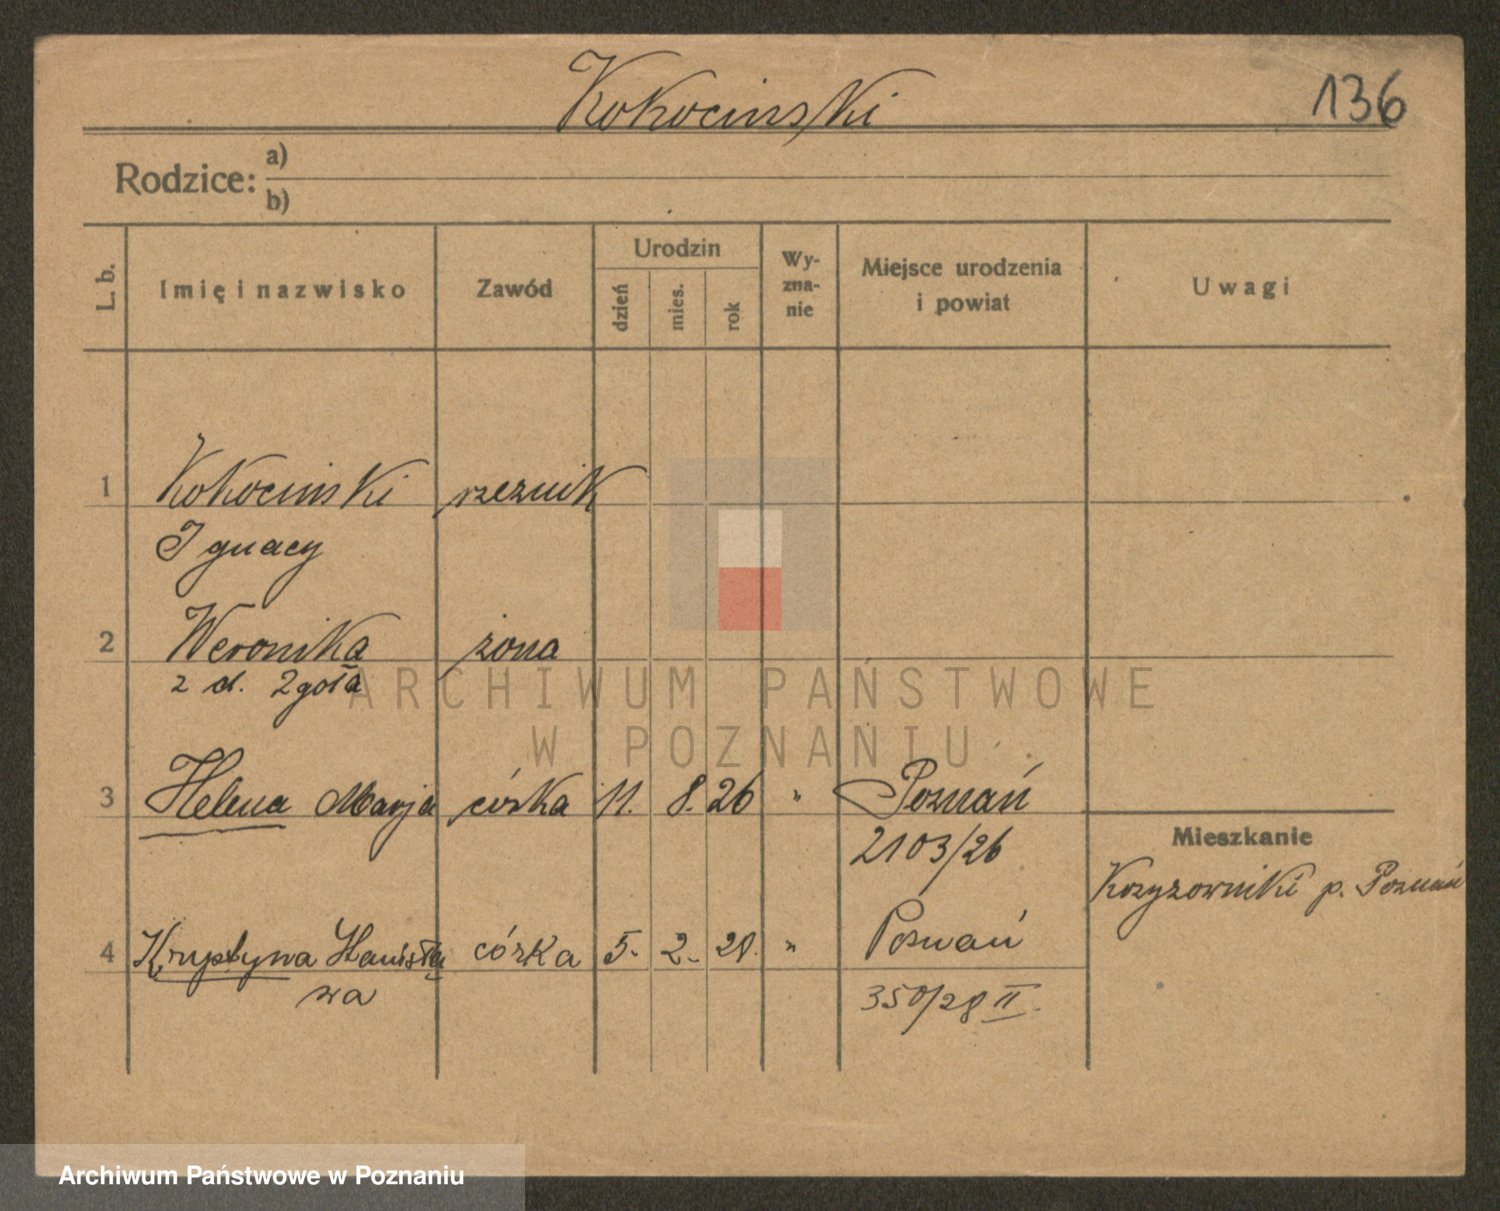 Kokocinski
136
Rodzice:
a)
b)
L. b.
Imię i nazwisko
Zawód
Urodzin
dzień
mies.
rok
Wy-
zna-
nie
Miejsce urodzenia
i powiat
Uwagi
1 Kokocinski rzeznik
Ignacy
2 Weronika żona
z d. Zgoła
ARCHIWUM PAŃSTWOWE
W POZNANIU
3 Helena Marja córka 11. 8. 26 " Poznań
2103/26
Mieszkanie
Krzyzowniki p. Poznań
4 Krystyna Stanisła córka 5. 2. 28. " Poznań
wa
350/28 II.
Archiwum Państwowe w Poznaniu